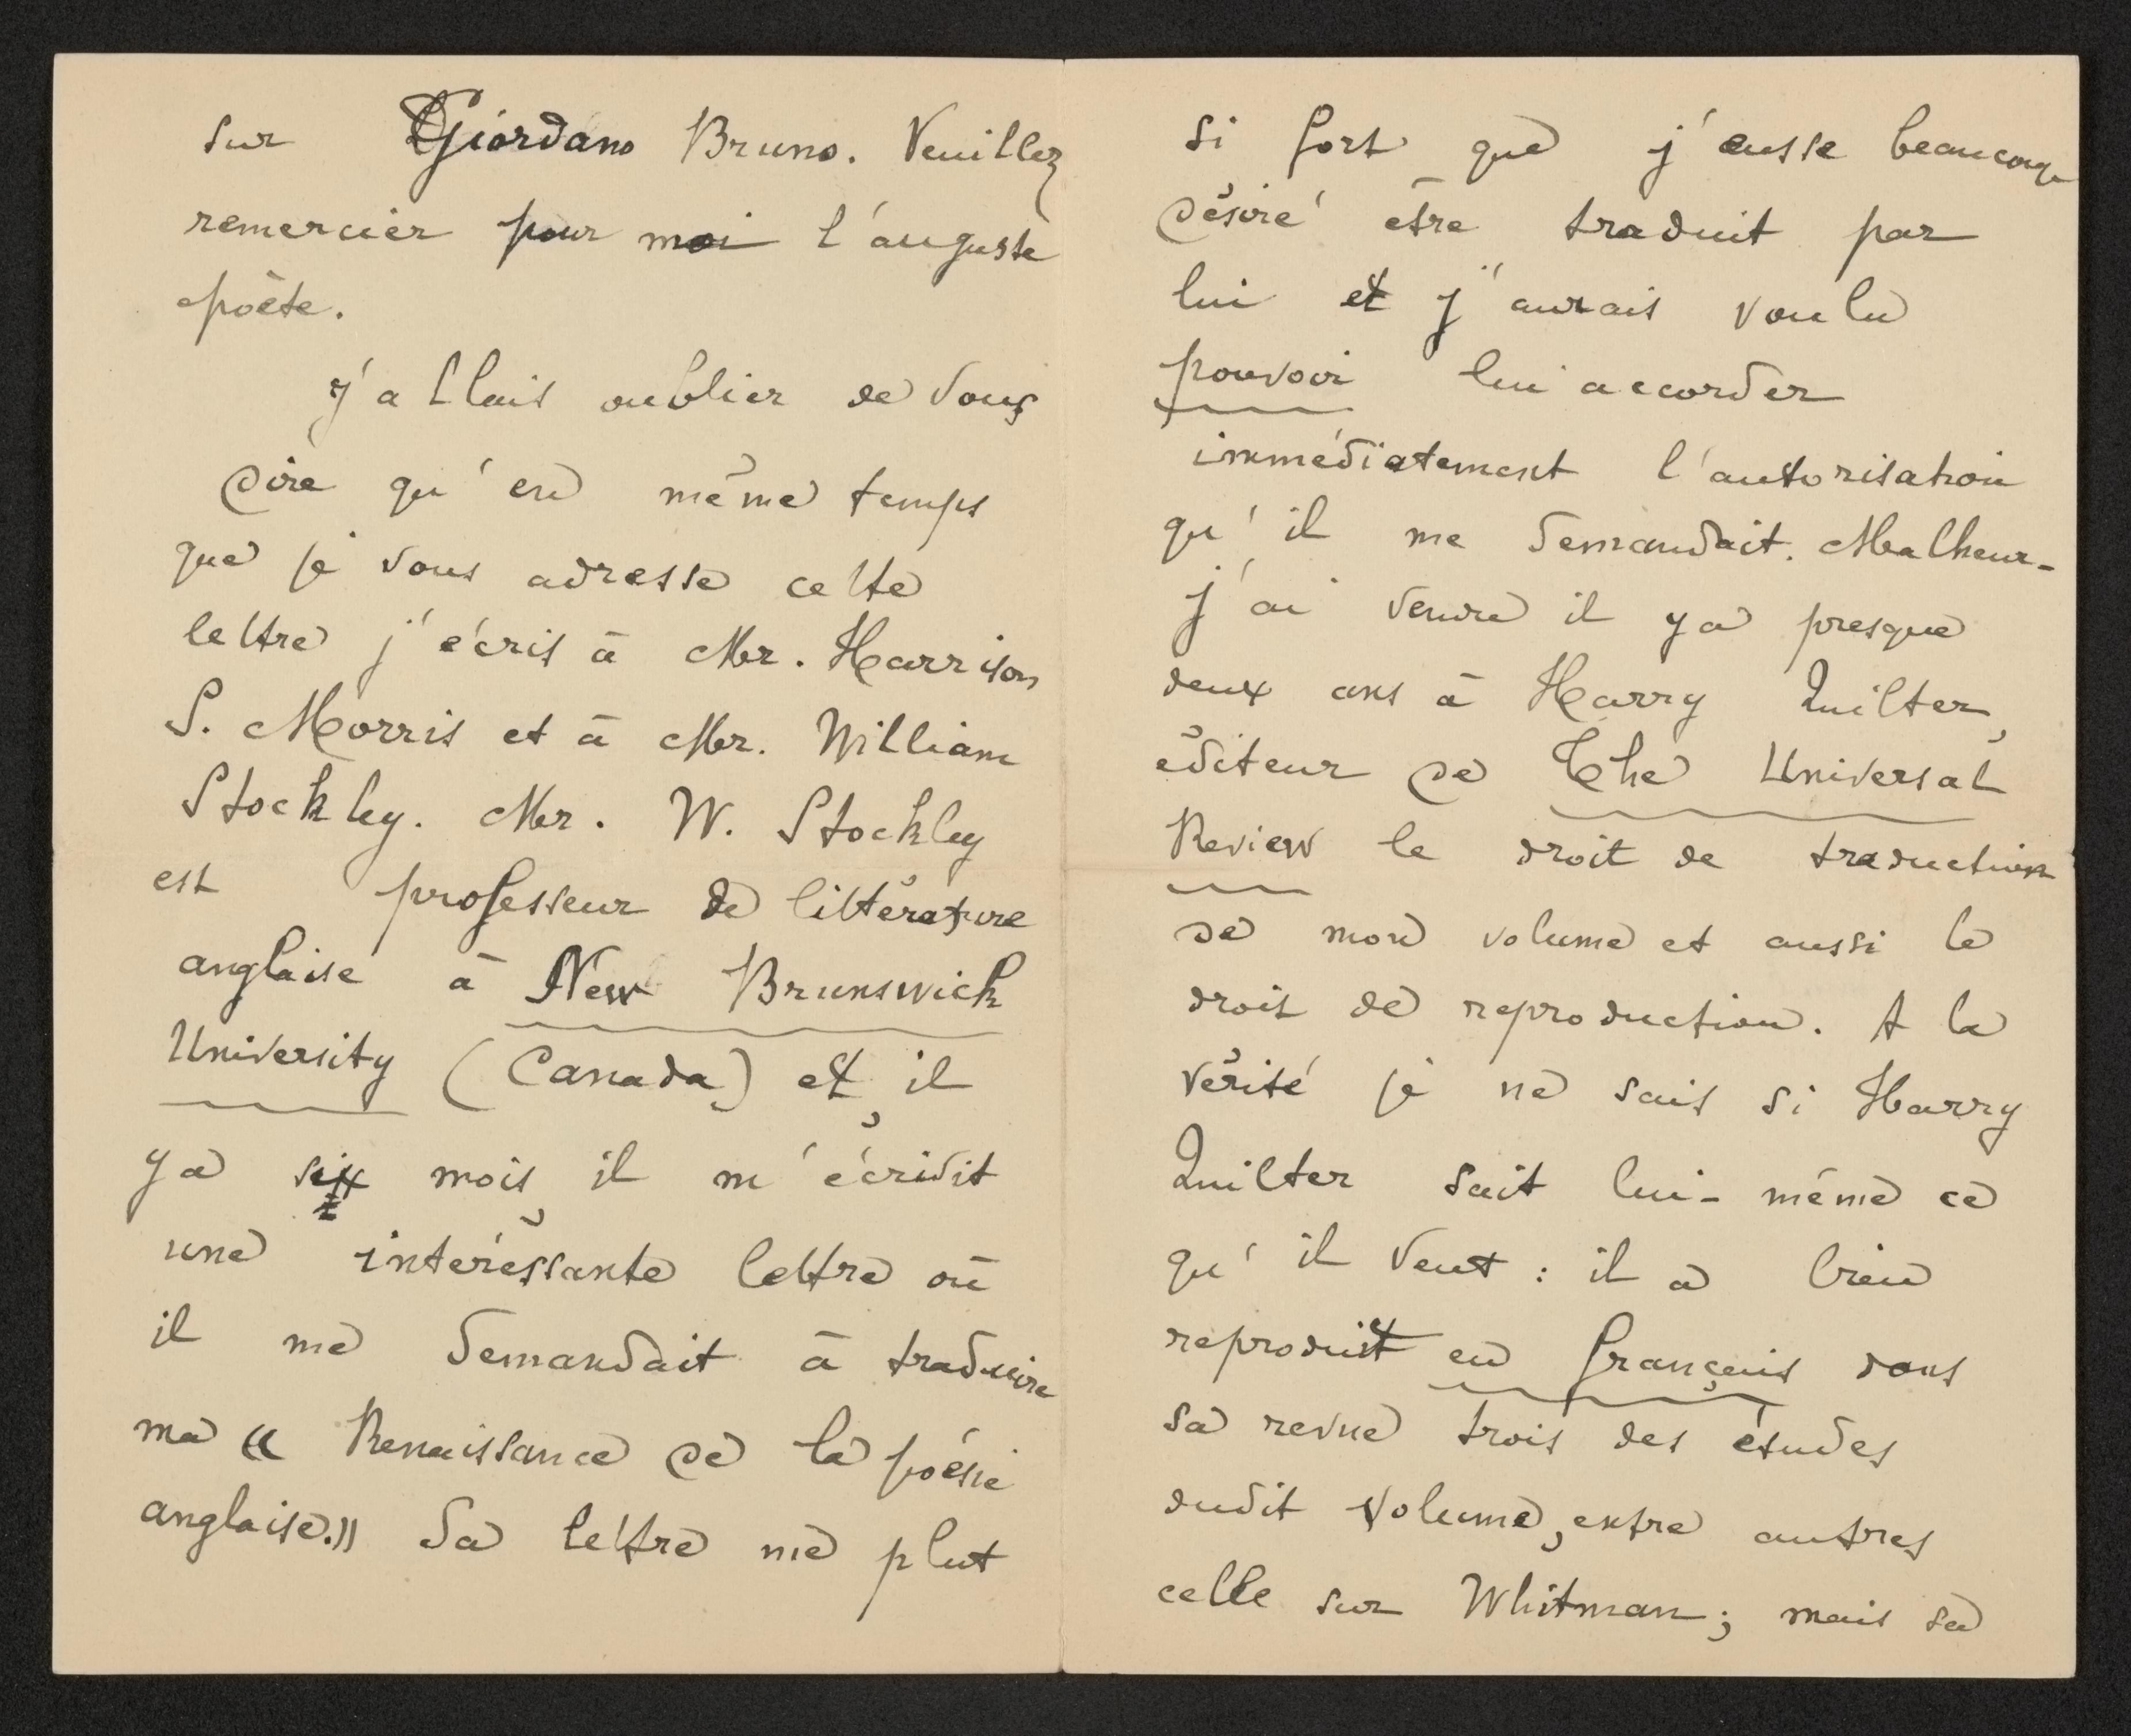 sur Giordano Bruno. Veuillez
remercier pour moi l'auguste
poète.
J'allais oublier de vous
dire qu'en même temps
que je vous adresse cette
lettre j'écris à Mr. Harrison
S. Morris et à Mr. William
Stockley. Mr. W. Stockley
est professeur de littérature
anglaise à New Brunswick
University (Canada) et, il
y a six mois, il m'écrivit
une intéressante lettre où
il me demandait à traduire
ma « Renaissance de la poésie
anglaise.» Sa lettre me plut
si fort que j'eusse beaucoup
désiré être traduit par
lui et j'aurais voulu
pouvoir lui accorder
immédiatement l'autorisation
qu'il me demandait. Malheur-
j'ai vendu il y a presque
deux ans à Harry Quilter,
éditeur de The Universal
Review le droit de traduction
de mon volume et aussi le
droit de reproduction. A la
vérité je ne sais si Harry
Quilter sait lui-même ce
qu'il veut : il a bien
reproduit en français dans
sa revue trois des études
dudit volume, entre autres
celle sur Whitman; mais sa